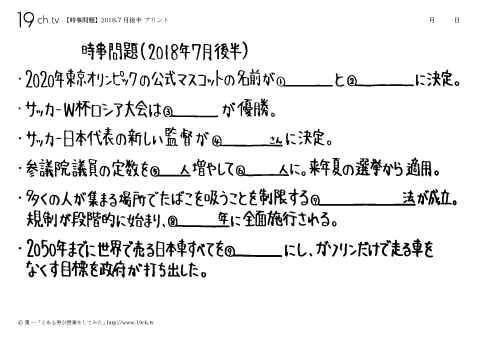 19ch.tv 【時事問題】2018.7月後半 プリント 月 日
時事問題(2018年7月後半)
・2020年東京オリンピックの公式マスコットの名前が①______と②______に決定。
・サッカーW杯ロシア大会は③______が優勝。
・サッカー日本代表の新しい監督が④______さんに決定。
・参議院議員の定数を⑤____人増やして⑥____人に。来年夏の選挙から適用。
・多くの人が集まる場所でたばこを吸うことを制限する⑦________法が成立。
規制が段階的に始まり、⑧______年に全面施行される。
・2050年までに世界で売る日本車すべてを⑨______にし、ガソリンだけで走る車を
なくす目標を政府が打ち出した。
© 葉一「とある男が授業をしてみた」http://www.19ch.tv